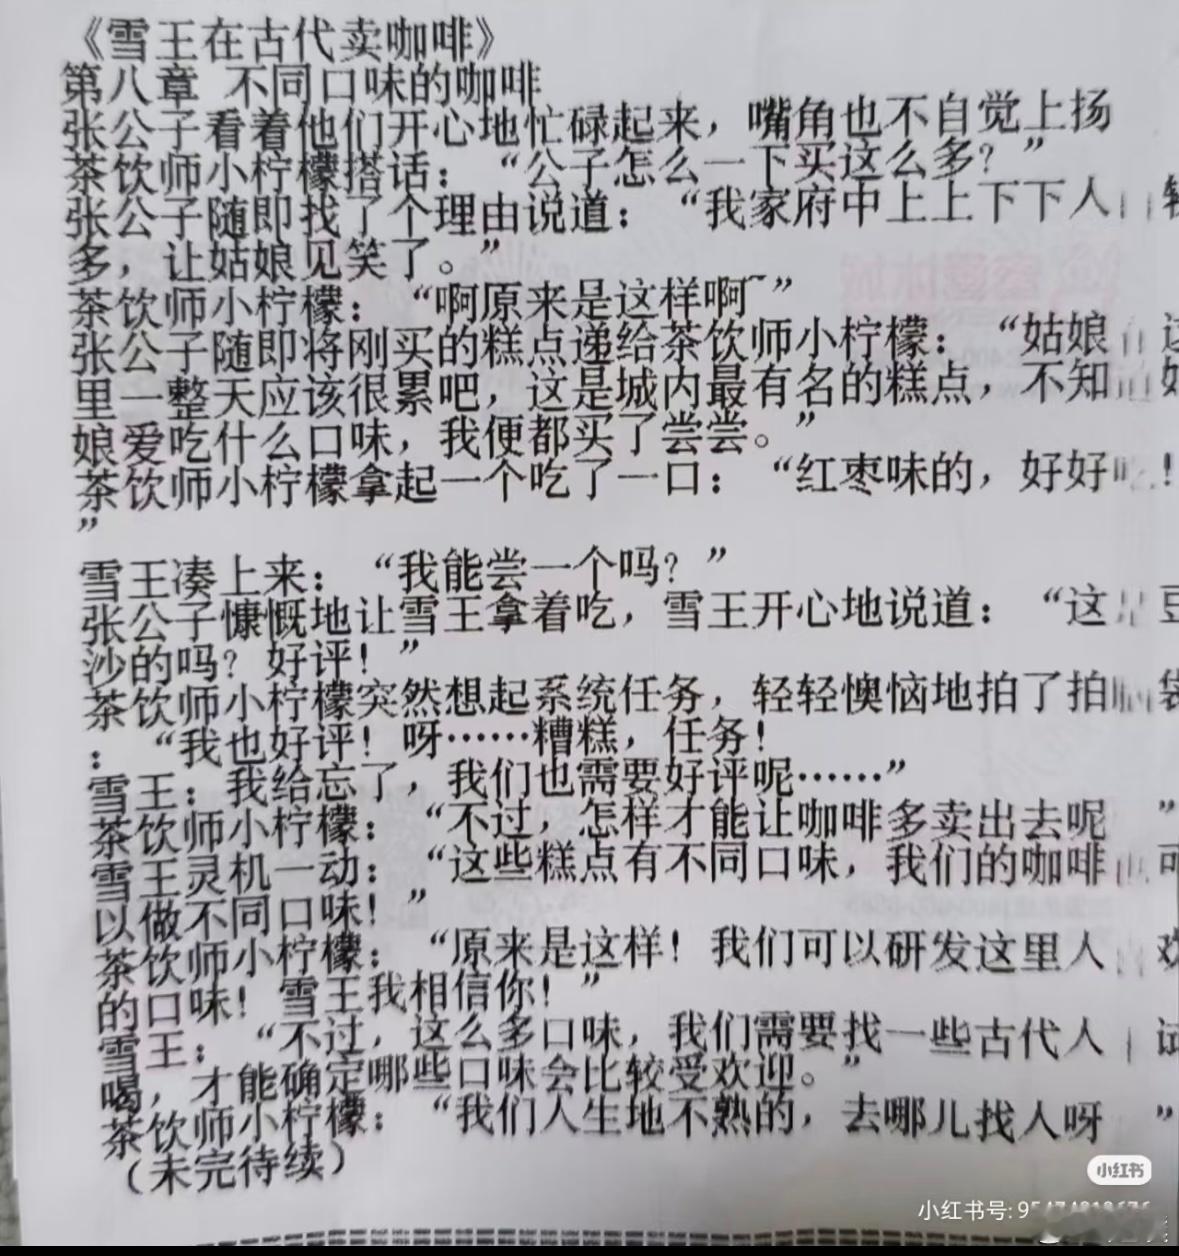 《雪王在古代卖咖啡》
第八章 不同口味的咖啡
张公子看着他们开心地忙碌起来，嘴角也不自觉上扬
茶饮师小柠檬搭话：“公子怎么一下买这么多？”
张公子随即找了个理由说道：“我家府中上上下下人
多，让姑娘见笑了。”
茶饮师小柠檬：“啊原来是这样啊~”
张公子随即将刚买的糕点递给茶饮师小柠檬：“姑娘
里一整天应该很累吧，这是城内最有名的糕点，不知
娘爱吃什么口味，我便都买了尝尝。”
茶饮师小柠檬拿起一个吃了一口：“红枣味的，好好！
”
雪王凑上来：“我能尝一个吗？”
张公子慷慨地让雪王拿着吃，雪王开心地说道：“这是豆
沙的吗？好评！”
茶饮师小柠檬突然想起系统任务，轻轻懊恼地拍了拍袋
：“我也好评！呀……糟糕，任务！
雪王：我给忘了，我们也需要好评呢……”
茶饮师小柠檬：“不过，怎样才能让咖啡多卖出去呢”
雪王灵机一动：“这些糕点有不同口味，我们的咖啡可
以做不同口味！”
茶饮师小柠檬：“原来是这样！我们可以研发这里人
的口味！雪王我相信你！”
雪王：“不过，这么多口味，我们需要找一些古代人试
喝，才能确定哪些口味会比较受欢迎。”
茶饮师小柠檬：“我们人生地不熟的，去哪儿找人呀”
（未完待续）
小红书
小红书号:95474818676